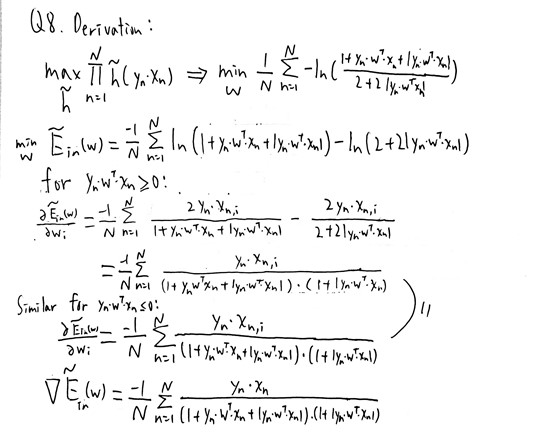 Q8. Derivation:
max_{\tilde{h}} \prod_{n=1}^{N} \tilde{h}(y_n·x_n) ⇒ min_w \frac{1}{N} \sum_{n=1}^{N} -ln(\frac{1+y_n·w^T·x_n+|y_n·w^T·x_n|}{2+2|y_n·w^Tx_n|})
min_w \tilde{E}_{in}(w) = \frac{-1}{N} \sum_{n=1}^{N} ln(1+y_n·w^T·x_n+|y_n·w^T·x_n|) - ln(2+2|y_n·w^T·x_n|)
for y_n·w^T·x_n ≥ 0:
\frac{∂\tilde{E}_{in}(w)}{∂w_i} = \frac{-1}{N} \sum_{n=1}^{N} \frac{2y_n·x_{n,i}}{1+y_n·w^T·x_n+|y_n·w^T·x_n|} - \frac{2y_n·x_{n,i}}{2+2|y_n·w^T·x_n|}
= \frac{-1}{N} \sum_{n=1}^{N} \frac{y_n·x_{n,i}}{(1+y_nw^T·x_n+|y_n·w^T·x_n|)·(1+|y_n·w^T·x_n|)}
Similar for y_n·w^T·x_n ≤ 0:
\frac{∂\tilde{E}_{in}(w)}{∂w_i} = \frac{-1}{N} \sum_{n=1}^{N} \frac{y_n·x_{n,i}}{(1+y_n·w^T·x_n+|y_n·w^T·x_n|)·(1+|y_n·w^T·x_n|)} ) ||
∇\tilde{E}_{in}(w) = \frac{-1}{N} \sum_{n=1}^{N} \frac{y_n·x_n}{(1+y_n·w^T·x_n+|y_n·w^T·x_n|)·(1+|y_n·w^T·x_n|)}